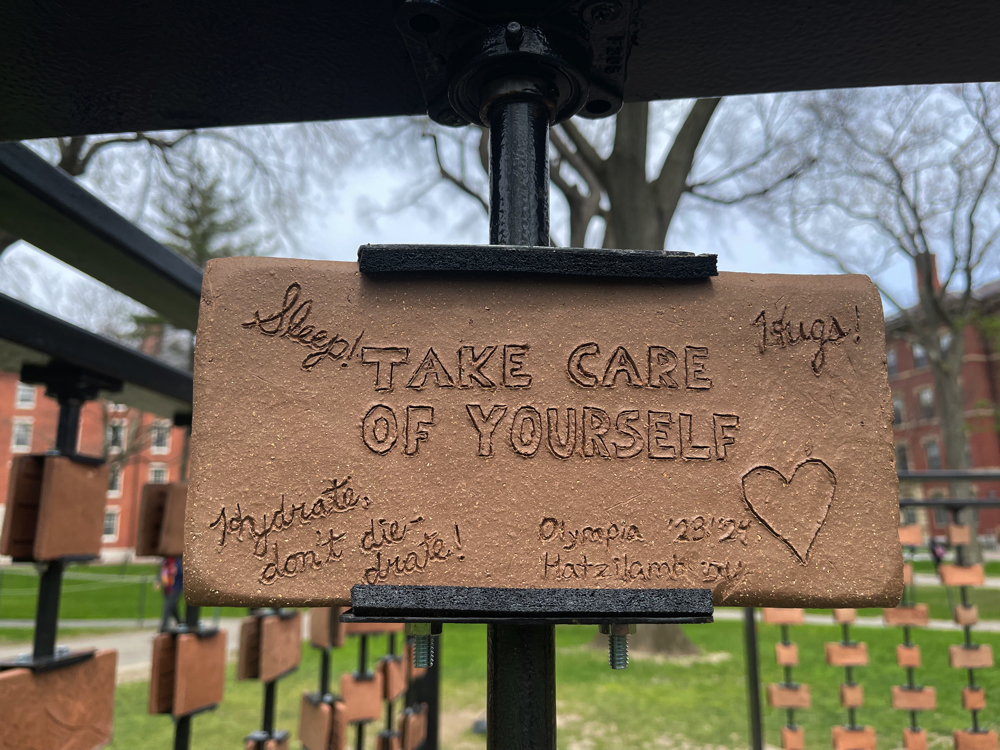 Sleep!
Hugs!
TAKE CARE
OF YOURSELF
Hydrate,
don't die-
drate!
Olympia '23 '24